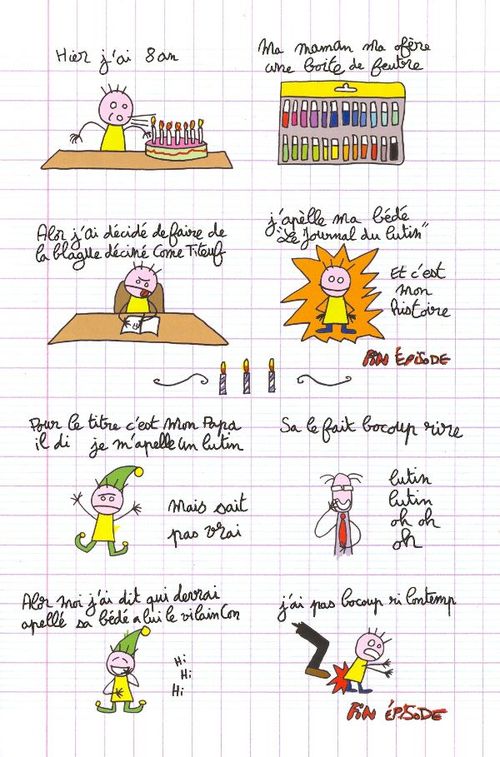 Hier j'ai 8 an
Ma maman ma ofère
une boite de feutre
Alor j'ai décidé de faire de
la blague déciné come Titeuf
j'apèlle ma bédé
"Le Journal du lutin"
Et c'est
mon
histoire
FIN ÉPISODE
Pour le titre c'est mon Papa
il di je m'apelle Un lutin
mais sait
pas vrai
Sa le fait bocoup rire
lutin
lutin
oh oh
oh
Alor moi j'ai dit qui devrai
apellé sa bédé a lui le vilain con
Hi
Hi
Hi
j'ai pas bocoup ri lontemp
FIN ÉPISODE